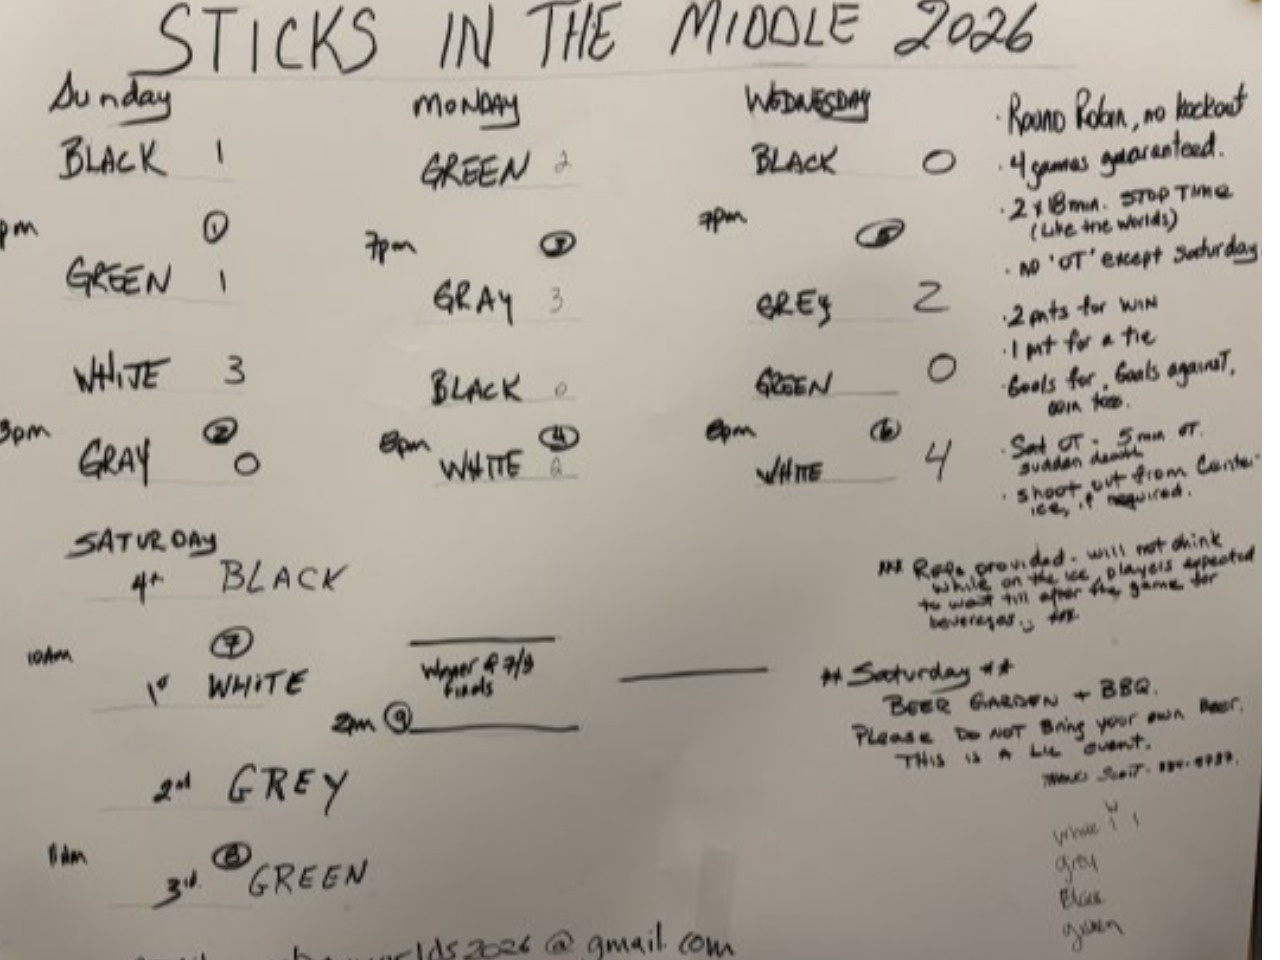 STICKS IN THE MIDDLE 2026
Sunday
BLACK 1
pm ①
GREEN 1
WHITE 3
3pm ②
GRAY 0
MONDAY
GREEN 2
7pm ③
GRAY 3
BLACK 0
8pm ④
WHITE 2
WEDNESDAY
BLACK 0
7pm ⑤
GREY 2
GREEN 0
8pm ⑥
WHITE 4
SATURDAY
4th BLACK
10Am ⑦
1st WHITE
2nd GREY
11Am ⑧
3rd. GREEN
Winner of 7/8
finals
2pm ⑨
· ROUND Robin, no knockout
· 4 games guaranteed.
· 2 x 18 min. STOP TIME
(Like the worlds)
· NO 'OT' except Saturday
· 2 pnts for WIN
· 1 pnt for a tie
· Goals for, Goals against,
coin toss.
· Sat OT - 5 min OT.
sudden death
· shoot out from Center
ice, if required.
*** Refs provided - will not drink
while on the ice, players expected
to wait till after the game for
beverages. ***
** Saturday **
BEER GARDEN + BBQ.
PLEASE DO NOT Bring your own Beer.
THIS IS A event.
THANKS SCOTT
W
white 1 1
grey
Black
green
worlds2026@gmail.com